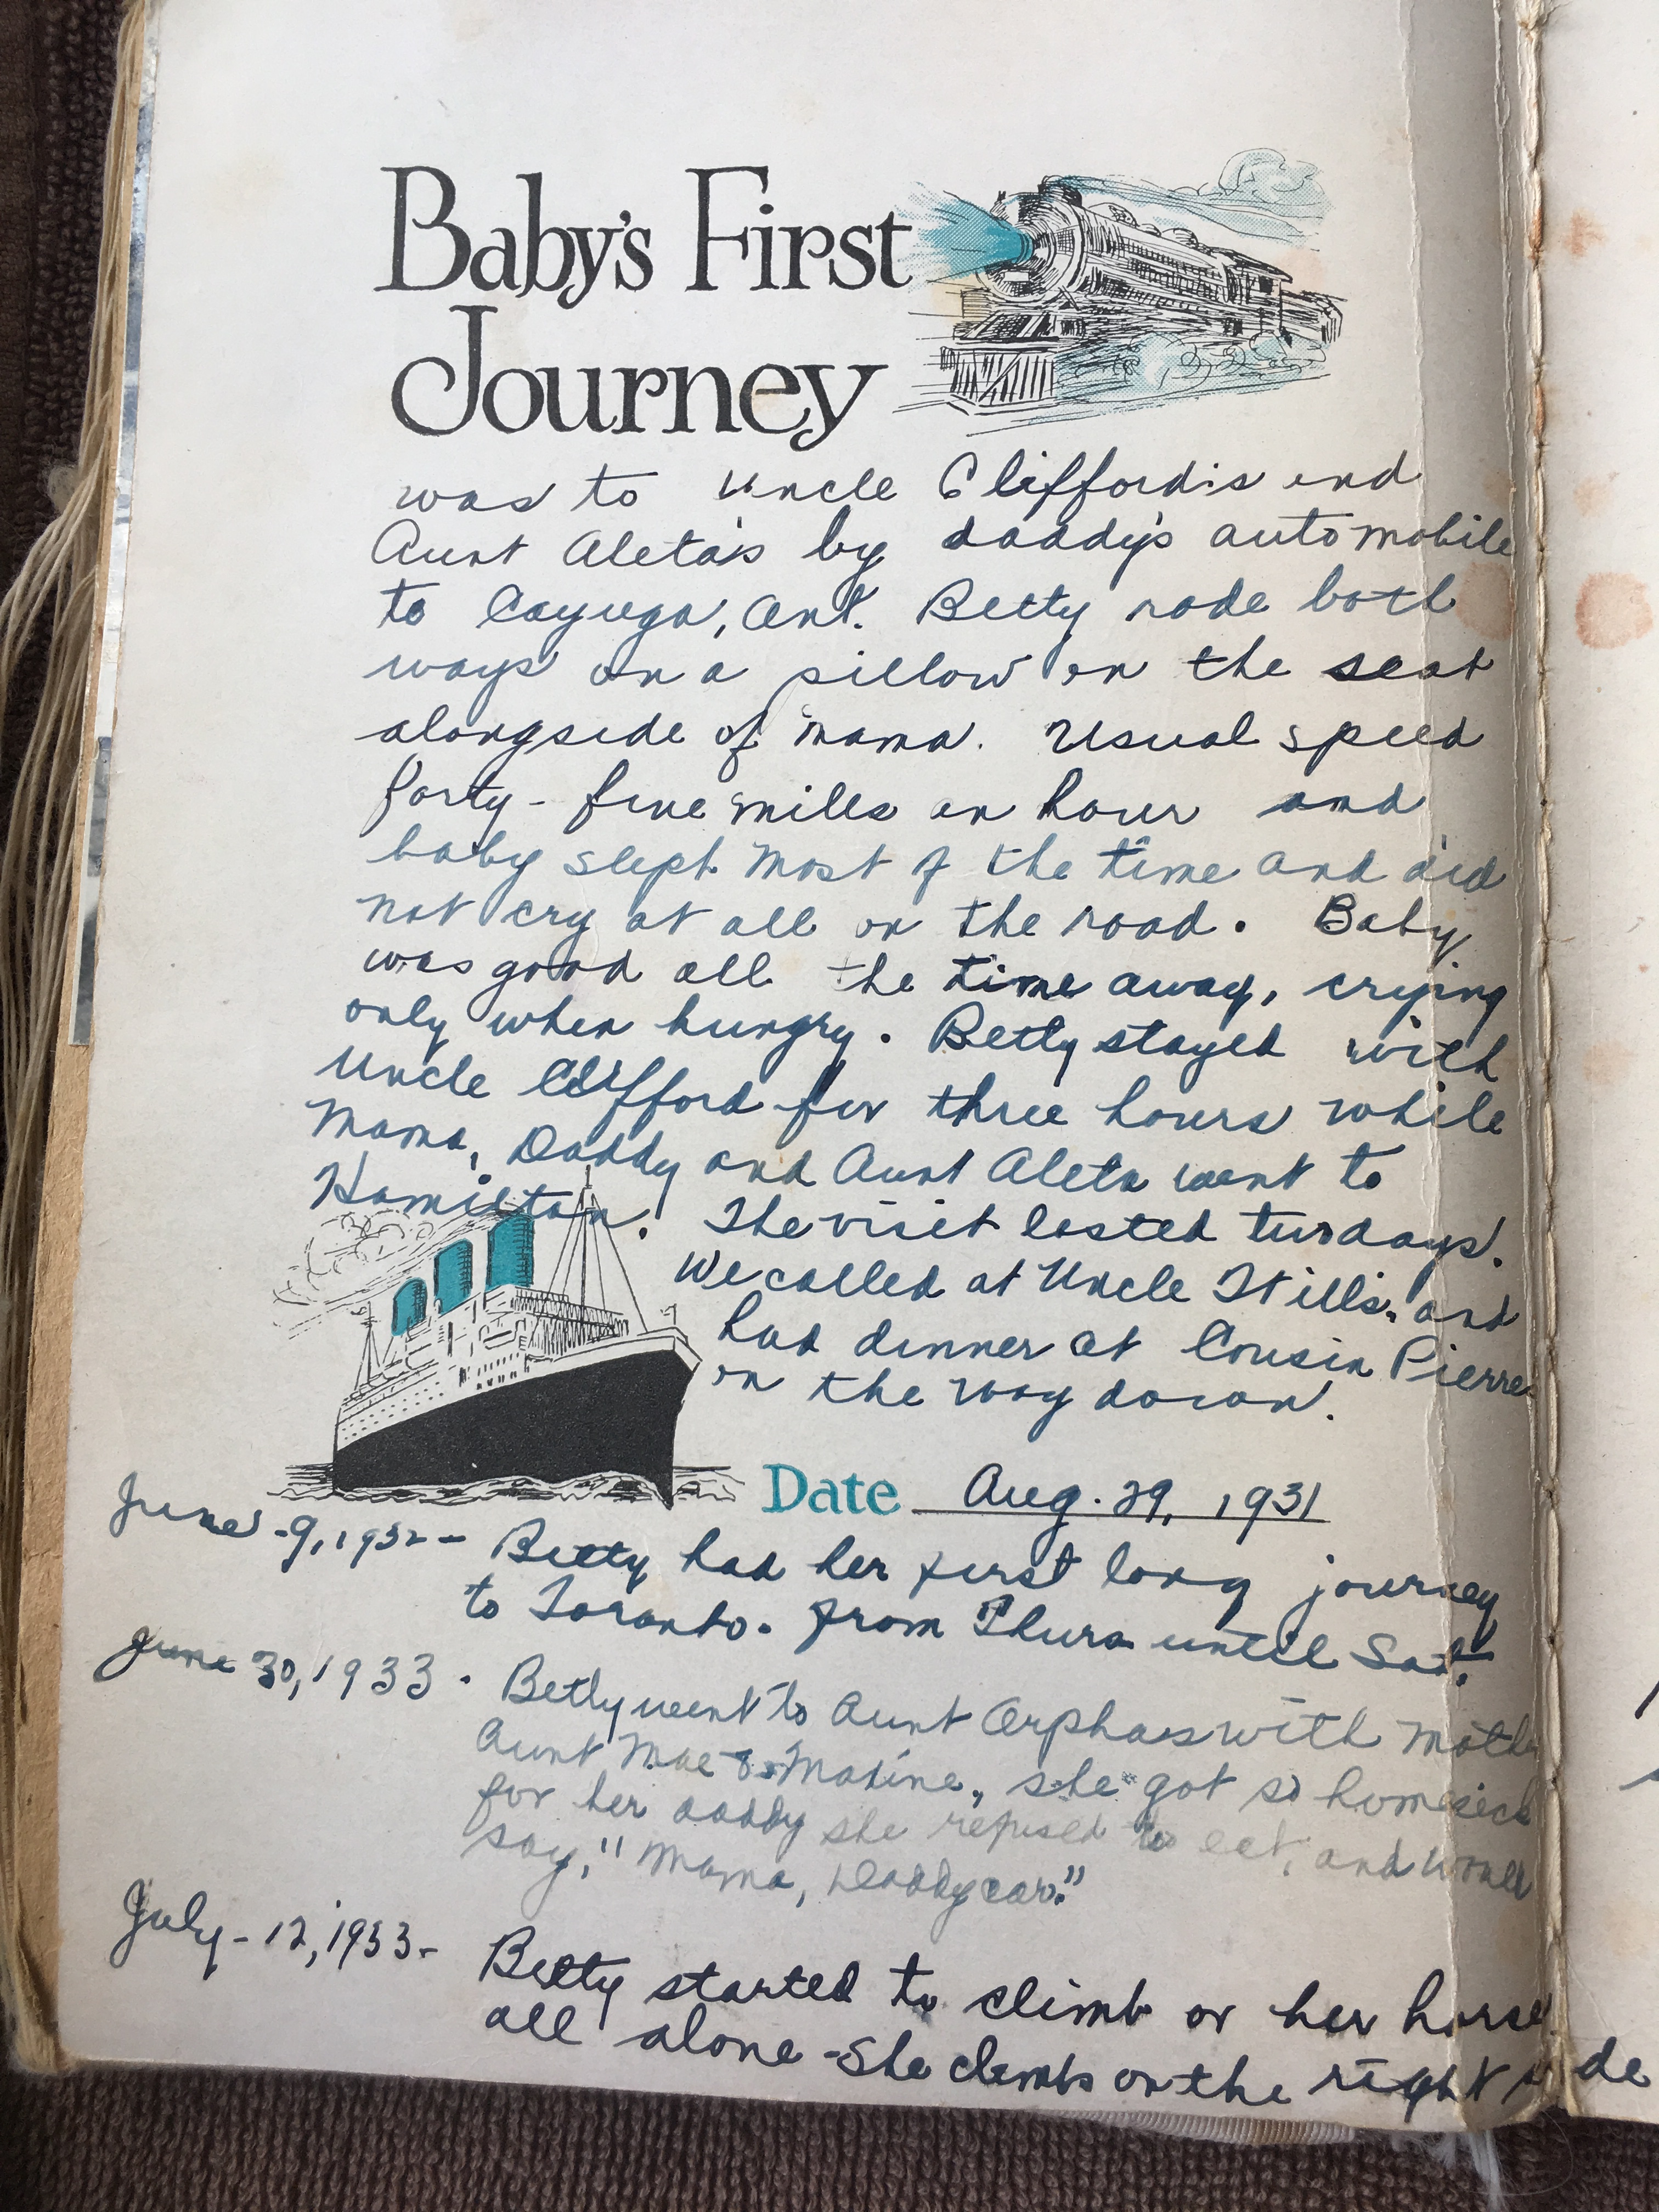 Baby's First
Journey
was to Uncle Clifford's and
Aunt Aleta's by daddy's automobile
to Cayuga, Ont. Betty rode both
ways on a pillow on the seat
alongside of mama. Usual speed
forty-five miles an hour and
baby slept most of the time and did
not cry at all on the road. Baby
was good all the time away, crying
only when hungry. Betty stayed with
Uncle Clifford for three hours while
Mama, Daddy and Aunt Aleta went to
Hamilton. The visit lasted two days.
We called at Uncle and
had dinner at Cousin Pierre
on the way down.
Date Aug. 29, 1931
June -9, 1932- Betty had her first long journey
to Toronto. from Thurs until Sat.
June 30, 1933. Betty went to Aunt Orpha's with Mother
Aunt Mae & Maxine, she got so homesick
for her daddy she refused to eat, and would
say, "Mama, Daddy car."
July-12, 1933- Betty started to climb on her horse
all alone - She climbs on the right side